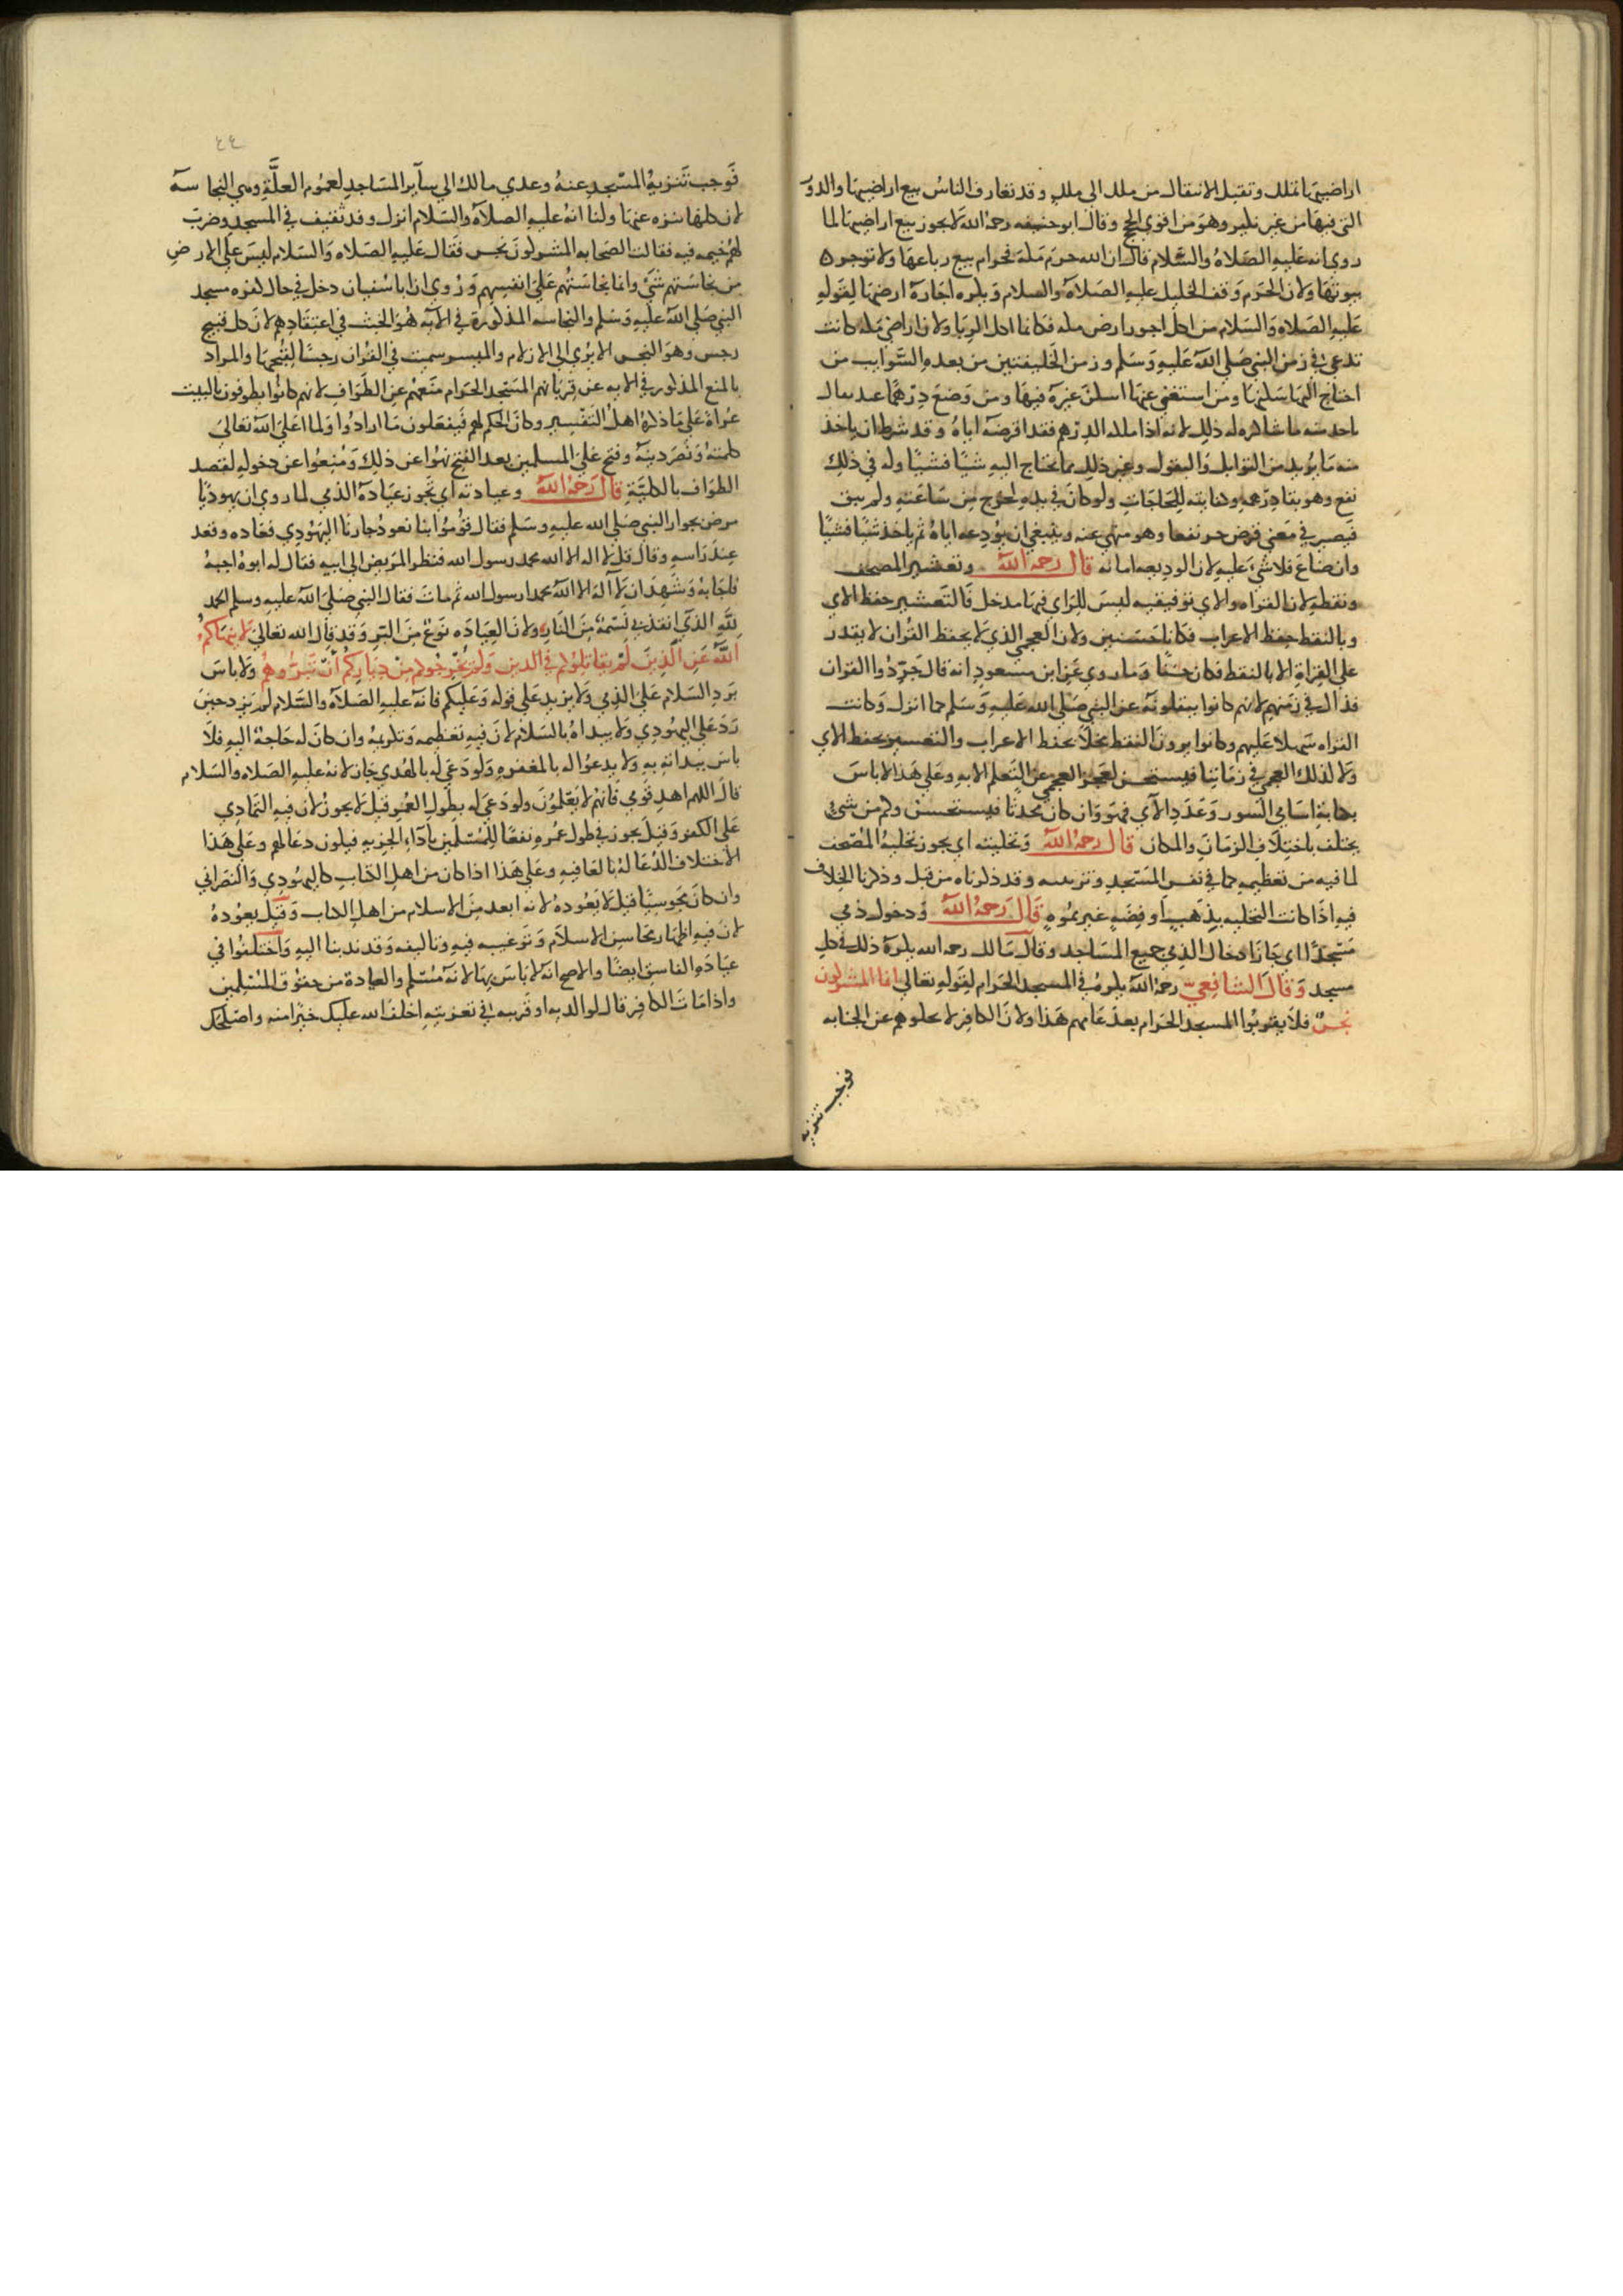 اراضيها تملك وتقبل الانتقال من ملك الى ملك وقد تعارف الناس بيع اراضيها والدور
التي فيها من غير نكير وهو من اقوي الحجج وقال ابو حنيفه رحمه الله لا يجوز بيع اراضيها لما
روي انه عليه الصلاة والسلام قال ان الله حرم مكة فحرام بيع رباعها ولا توجره
بيوتها ولان الحرم وقف الخليل عليه الصلاة والسلام ويكره اجارة ارضها لقوله
عليه الصلاه والسلام من اكل اجور ارض مكه فكانما اكل الربا ولان اراضي مكه كانت
تدعى في زمن النبي صلي الله عليه وسلم وزمن الخليفتين من بعده السوايب من
احتاج اليها سكنها ومن استغني عنها اسكن غيره فيها ومن وضع درهما عند بقال
ياخذ منه ما شا كره له ذلك لانه اذا ملكه الدرهم فقد اقرضه اياه وقد شرط ان ياخذ
منه ما يريد من التوابل والبقول وغير ذلك مما يحتاج اليه شيا فشيا وله في ذلك
نفع وهو بقا درهمه وكفايته للحاجات ولو كان في يده لخرج من ساعته ولم يبق
فيصير في معني قرض جر نفعا وهو منهي عنه وينبغي ان يودعه اياه ثم ياخذ شيا فشيا
وان ضاع فلا شي عليه لان الوديعه امانه قال رحمه الله وتعشير المصحف
ونقطه لان القراه والاي توقيفيه ليس للراي فيها مدخل فالتعشير حفظ الاي
وبالنقط حفظ الاعراب فكانا حسنين ولان العجمي الذي لا يحفظ القران لا يقدر
علي القراة الا بالنقط فكان حسنا وما روي عن ابن مسعود انه قال جردوا القران
فذاك في زمنهم لانهم كانوا ينقلونه عن النبي صلي الله عليه وسلم كما انزل وكانت
القراه سهلا عليهم وكانوا يرون النقط مخلا بحفظ الاعراب والتعشير بحفظ الاي
ولا كذلك العجمي في زماننا فيستحسن لعجز العجمي عن التعلم الا به وعلي هذا لا باس
بكتابة اسامي السور وعدد الآي فهو وان كان محدثا فيستحسن وكم من شي
يختلف باختلاف الزمان والمكان قال رحمه الله وتحليته اي يجوز تحلية المصحف
لما فيه من تعظيمه كما في نقس المسجد وتزيينه وقد ذكرناه من قبل وذكرنا الخلاف
فيه اذا كانت التحليه بذهب او فضه غير مموه قال رحمه الله ودخول ذمي
مسجدا اي جاز ادخال الذمي جميع المساجد وقال مالك رحمه الله يكره ذلك في كل
مسجد وقال الشافعي رحمه الله يكره في المسجد الحرام لقوله تعالي انما المشركون
نجس فلا يقربوا المسجد الحرام بعد عامهم هذا ولان الكافر لا يخلو هم عن الجنابه
فوجب تنزيه
٤٤
فوجب تنزيه المسجد عنه وعدي مالك الي ساير المساجد لعموم العلة وهي النجاسة
لان كلها تنزه عنها ولنا انه عليه الصلاة والسلام انزل وفد ثقيف في المسجد وضرب
لهم خيمه فيه فقالت الصحابه المشركون نجس فقال عليه الصلاه والسلام ليس علي الارض
من نجاستهم شي وانما نجاستهم علي انفسهم وروي ان ابا سفيان دخل في حال كفره مسجد
النبي صلي الله عليه وسلم والنجاسه المذكورة في الآية هو الخبث في اعتقادهم لان كل قبيح
رجس وهو النجس الا يري الي الازلام والميسر سميت في القران رجسا لقبحها والمراد
بالمنع المذكور في الايه عن قربانهم المسجد الحرام منعهم عن الطواف لانهم كانوا يطوفون بالبيت
عراة علي ما ذكره اهل التفسير وكان الحكم لهم فيفعلون ما ارادوا ولما اعلي الله تعالي
كلمته ونصر دينه وفتح علي المسلمين بعد الفتح نهوا عن ذلك ومنعوا عن دخوله لقصد
الطواف بالكلية قال رحمه الله وعيادته اي تجوز عيادة الذمي لما روي ان يهوديا
مرض بجوار النبي صلي الله عليه وسلم فقال قوموا بنا نعود جارنا اليهودي فعاده وقعد
عند راسه وقال قل لا اله الا الله محمد رسول الله فنظر المريض الي ابيه فقال له ابوه اجبه
فاجابه وشهد ان لا اله الا الله محمدا رسول الله ثم مات فقال النبي صلي الله عليه وسلم الحمد
لله الذي انقذ بي نسمة من النار ولان العيادة نوع من البر وقد قال الله تعالي لا ينهاكم
الله عن الذين لم يقاتلوكم في الدين ولم يخرجوكم من دياركم ان تبروهم ولا باس
برد السلام علي الذمي ولا يزيد علي قوله وعليكم فانه عليه الصلاة والسلام لم يزد حين
رد علي اليهودي ولا يبداه بالسلام لان فيه تعظيمه وتكريمه وان كان له حاجة اليه فلا
باس ببدائه به ولا يدعوا له بالمغفره ولو دعي له بالهدي جاز لانه عليه الصلاه والسلام
قال اللهم اهد قومي فانهم لا يعلمون ولو دعي له بطول العمر قيل لا يجوز لان فيه التمادي
علي الكفر وقيل يجوز في طول عمره نفعا للمسلمين باداء الجزيه فيكون دعا لهم وعلي هذا
الاختلاف الدعا له بالعافيه وعلي هذا اذا كان من اهل الكتاب كاليهودي والنصراني
وان كان مجوسيا قيل لا يعوده لانه ابعد من الاسلام من اهل الكتاب وقيل يعوده
لان فيه اظهار محاسن الاسلام وترغيبه فيه وتاليفه وقد ندبنا اليه واختلفوا في
عيادة الفاسق ايضا والاصح انه لا باس بها لانه مسلم والعيادة من حقوق المسلمين
واذا مات الكافر قال لوالديه او قريبه في تعزيته اخلف الله عليك خيرا منه واصلحك